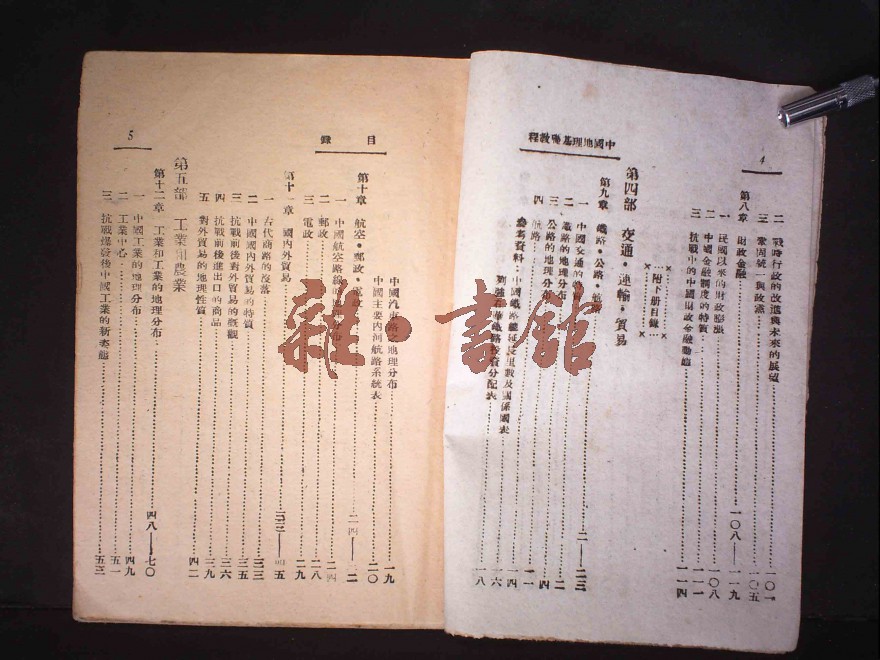 中國地理基礎教程
4
二 戰時行政的改進與未來的展望……一〇一
三 鞏固統一與政黨……一〇五
第八章 財政金融……一〇八——一一九
一 民國以來的財政膨漲……一〇八
二 中國金融制度的特質……一一一
三 抗戰中的中國財政金融動態……一一四
×……附下册目錄……×
第四部 交通·運輸·貿易
第九章 鐵路·公路·航路……二——二三
一 中國交通的特質
二 鐵路的地理分布……二
三 公路的地理分布
四 航路……一一
參考資料：中國鐵路總延長里數及國係國表……一四
列強在華鐵路投資分配表……一六
一八
目錄
5
中國汽車路之地理分布……一九
中國主要內河航路系統表……二〇
第十章 航空·郵政·電政……二四——三二
一 中國航空路線的地理分布……二四
二 郵政……二八
三 電政……二九
第十一章 國內外貿易……三三——四五
一 古代商路的沒落……三三
二 中國國內外貿易的特質……三五
三 抗戰前後對外貿易的概觀……三六
四 抗戰前後進出口的商品……三九
五 對外貿易的地理性質……四二
第五部 工業和農業
第十二章 工業和工業的地理分布……四八——七〇
一 中國工業的地理分布……四九
二 工業中心……五一
三 抗戰爆發後中國工業的新姿態……五三
雜·書館